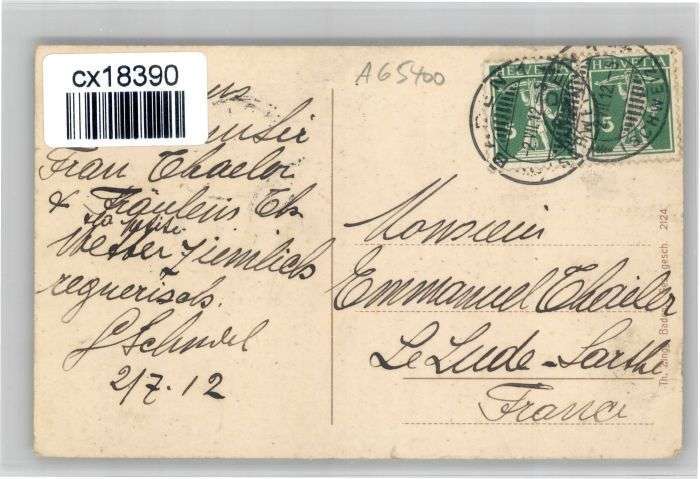 cx18390
A65400
HELVETIA
5
HELVETIA
5
BADEN
SCHWEIZ
Frau Thaeler
& Fräulein Th.
Wetter ziemlich
regnerisch.
2/7.12
Monsieur
Emmanuel Thaeler
Le Lude-Sarthe
France
Baden
gesch. 2124